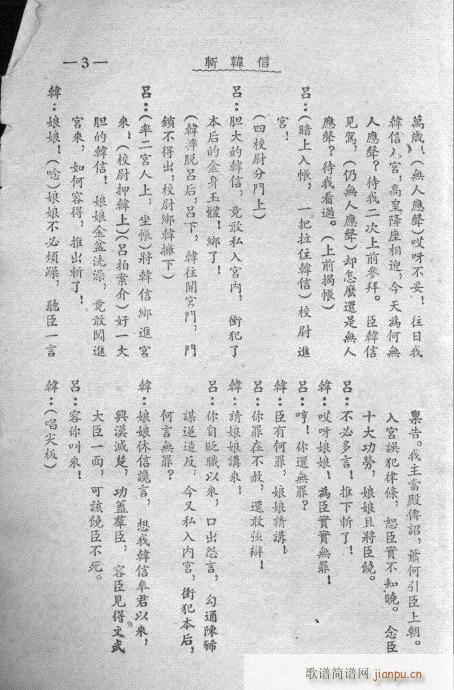 斬韓信
—3—
萬歲、(無人應聲)哎呀不妥！往日我
韓信入宮，高皇降座相迎，今天為何無
人應聲？待我二次上前參拜。臣韓信
見駕，(仍無人應聲)却怎麼還是無人
應聲？待我看過。(上前揭帳)
呂：(暗上入帳，一把拉住韓信)校尉進
宮！
(四校尉分門上)
呂：胆大的韓信，竟敢私入宮內，衝犯了
本后的金身玉體！綁了！
(韓摔脫呂后，呂下，韓往開宮門，門
鎖不得出，校尉綁韓擁下)
呂：(率二宮人上，坐帳)將韓信綁進宮
來！(校尉押韓上)(呂拍案介)好一大
胆的韓信！娘娘金盆洗澡，竟敢闖進
宮來，如何容得，推出斬了！
韓：娘娘！(唸)娘娘不必煩躁，聽臣一言
稟告。我主當殿傳詔，蕭何引臣上朝。
入宮誤犯律條，恕臣實不知曉。念臣
十大功勞，娘娘且將臣饒。
呂：不必多言！推下斬了！
韓：哎呀娘娘！為臣實實無罪！
呂：哼！你還無罪？
韓：臣有何罪，娘娘請講！
呂：你罪在不赦，還敢強辯！
韓：請娘娘講來！
呂：你自貶職以來，口出怨言，勾通陳豨
謀逆造反，今又私入內宮，衝犯本后，
何言無罪？
韓：娘娘休信讒言，想我韓信奉君以來，
興漢滅楚，功蓋羣臣，容臣見得文武
大臣一面，可該饒臣不死。
呂：容你叫來！
韓：(唱尖板)
歌谱简谱网
jianpu.cn